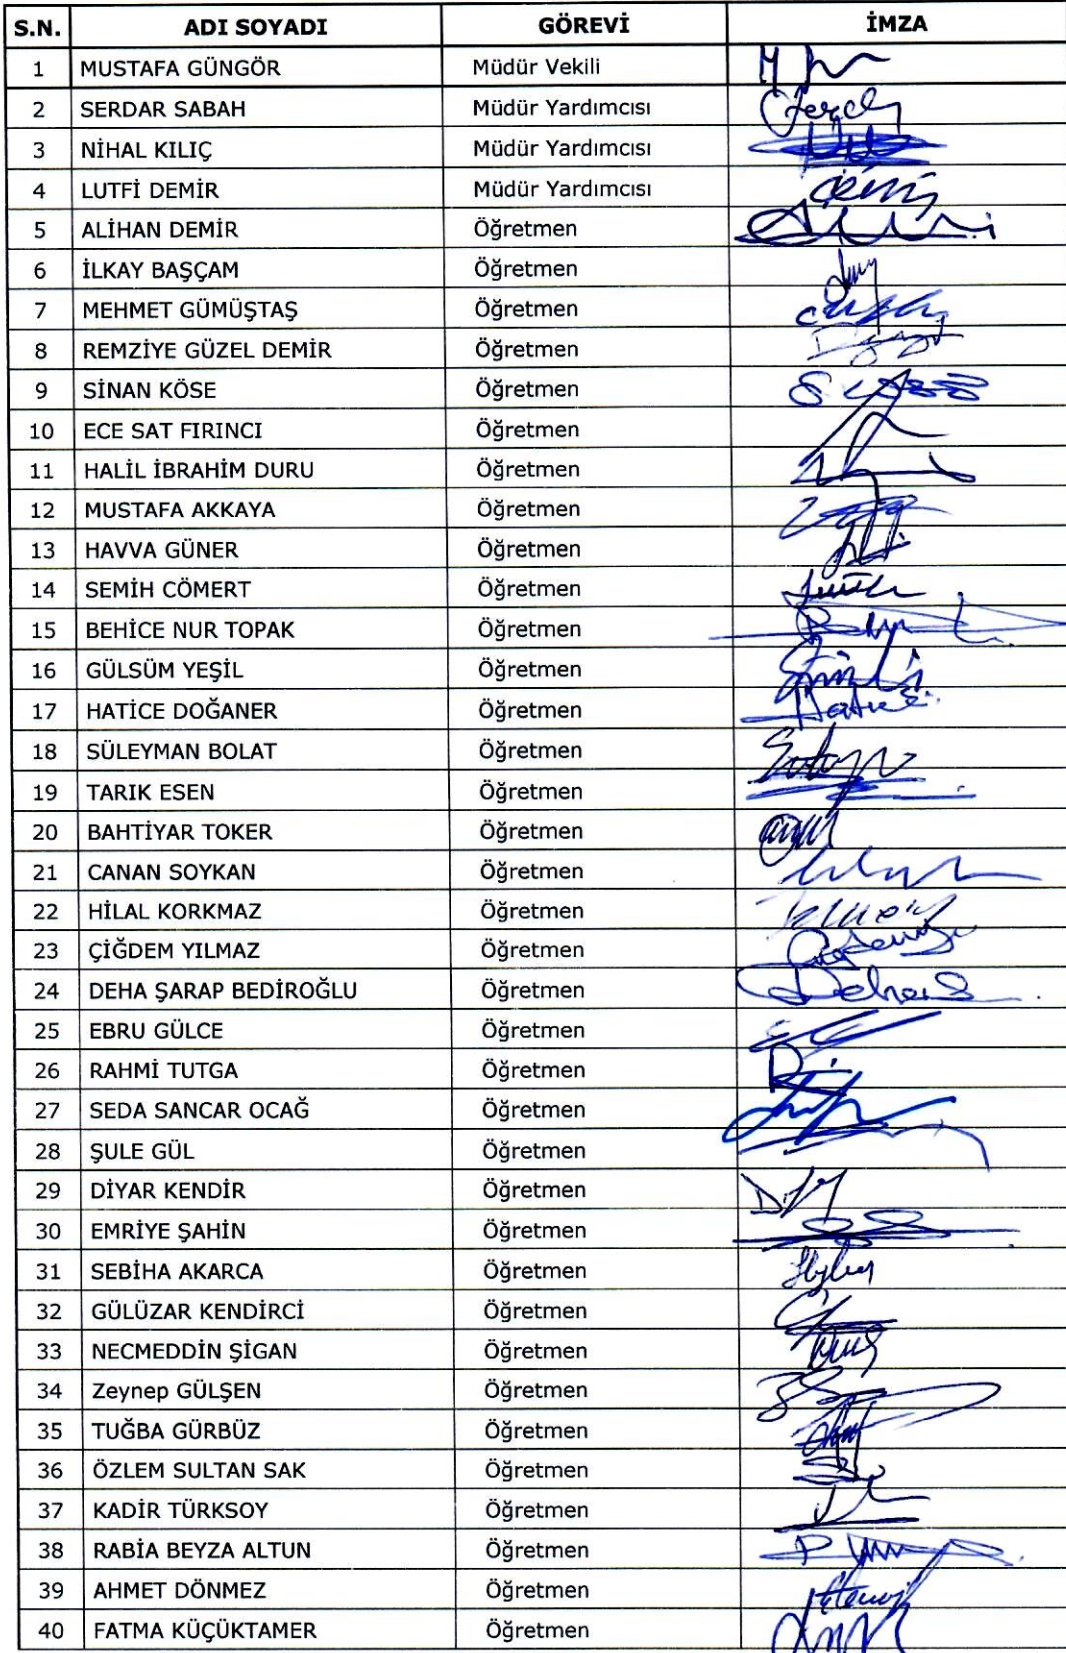 S.N. ADI SOYADI GÖREVİ İMZA
1 MUSTAFA GÜNGÖR Müdür Vekili
2 SERDAR SABAH Müdür Yardımcısı
3 NİHAL KILIÇ Müdür Yardımcısı
4 LUTFİ DEMİR Müdür Yardımcısı
5 ALİHAN DEMİR Öğretmen
6 İLKAY BAŞÇAM Öğretmen
7 MEHMET GÜMÜŞTAŞ Öğretmen
8 REMZİYE GÜZEL DEMİR Öğretmen
9 SİNAN KÖSE Öğretmen
10 ECE SAT FIRINCI Öğretmen
11 HALİL İBRAHİM DURU Öğretmen
12 MUSTAFA AKKAYA Öğretmen
13 HAVVA GÜNER Öğretmen
14 SEMİH CÖMERT Öğretmen
15 BEHİCE NUR TOPAK Öğretmen
16 GÜLSÜM YEŞİL Öğretmen
17 HATİCE DOĞANER Öğretmen
18 SÜLEYMAN BOLAT Öğretmen
19 TARIK ESEN Öğretmen
20 BAHTİYAR TOKER Öğretmen
21 CANAN SOYKAN Öğretmen
22 HİLAL KORKMAZ Öğretmen
23 ÇİĞDEM YILMAZ Öğretmen
24 DEHA ŞARAP BEDİROĞLU Öğretmen
25 EBRU GÜLCE Öğretmen
26 RAHMİ TUTGA Öğretmen
27 SEDA SANCAR OCAĞ Öğretmen
28 ŞULE GÜL Öğretmen
29 DİYAR KENDİR Öğretmen
30 EMRİYE ŞAHİN Öğretmen
31 SEBİHA AKARCA Öğretmen
32 GÜLÜZAR KENDİRCİ Öğretmen
33 NECMEDDİN ŞİGAN Öğretmen
34 Zeynep GÜLŞEN Öğretmen
35 TUĞBA GÜRBÜZ Öğretmen
36 ÖZLEM SULTAN SAK Öğretmen
37 KADİR TÜRKSOY Öğretmen
38 RABİA BEYZA ALTUN Öğretmen
39 AHMET DÖNMEZ Öğretmen
40 FATMA KÜÇÜKTAMER Öğretmen